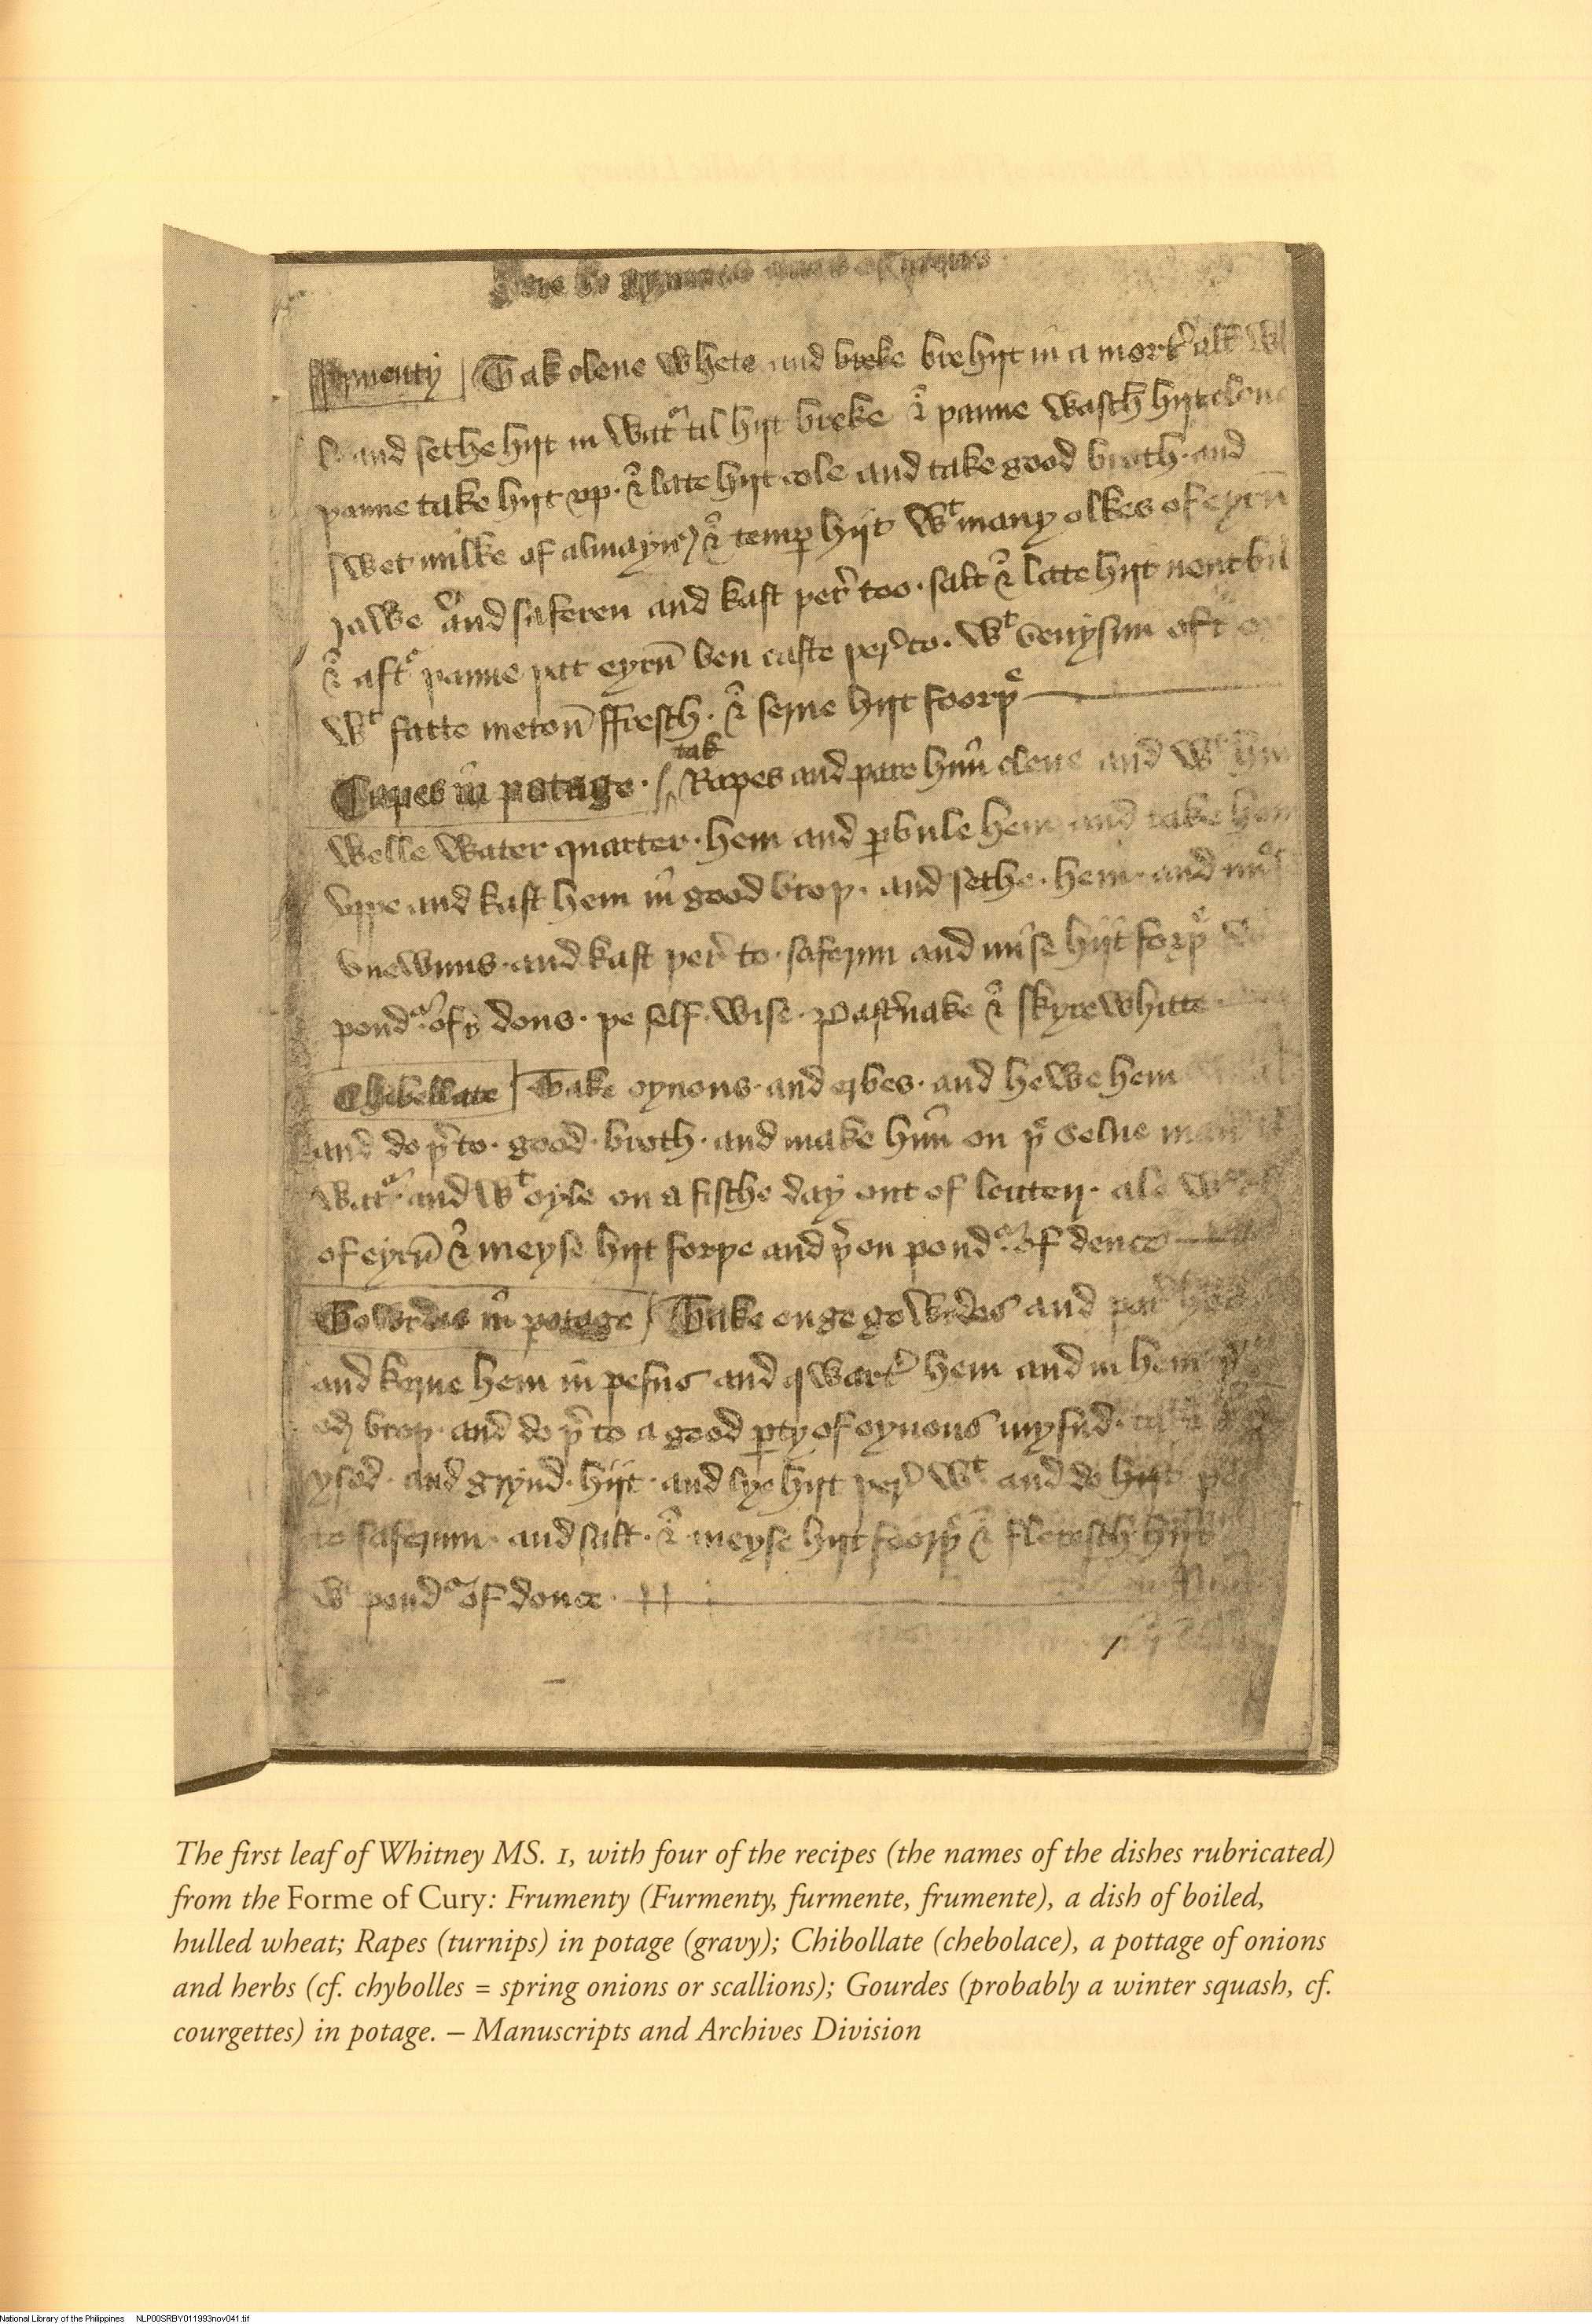 ffrmenty Tak clene Whete and breke hyt in a mort al
and sethe hyt in Wat til hyt breke & þanne Wasch hyt clene
þanne take hyt vp · & late hyt cole and take good broth · and
swet milke of almayn & temp hyit Wt many olkes of eyrn
and saferen and kast þer too · salt & late hyt nout
& aft þanne þat eyrn ben caste þer to · Wt venysun
Wt fatte meton ffresch · & serne hyt foorþe
Rapes in potage · tak Rapes and pare him clene and
Welle Water quarter · hem and pbuile hem and take hem
vppe and kast hem in good broþ · and sethe · hem · and
vnewuns · and kast þer to · saferun and mise hyit forþe
poud of dous · þe self · Wise · Pastnake & skyrewhitte
Chibollate Take oynons · and erbes · and hewe hem
and do þ to · good · broth · and make him on þe selue
Wat · and Wt oyle on a fische day out of lenten · ale
of eyrn & meyse hyt forþe and þ on poud of douce
Gowrdes in potage Take onge gowrdes and par
and kerue hem in pesus and qwart hem and in hem
broþ · and do þ to a good pty of oynons mysud ·
and grynd · hyit · and lye hyt þer Wt and do
to saferun · and salt · & meyse hyt foorþ & floresch hyt
Wt poud of douce ·
The first leaf of Whitney MS. 1, with four of the recipes (the names of the dishes rubricated)
from the Forme of Cury: Frumenty (Furmenty, furmente, frumente), a dish of boiled,
hulled wheat; Rapes (turnips) in potage (gravy); Chibollate (chebolace), a pottage of onions
and herbs (cf. chybolles = spring onions or scallions); Gourdes (probably a winter squash, cf.
courgettes) in potage. – Manuscripts and Archives Division
National Library of the Philippines NLP00SRBY011993nov041.tif